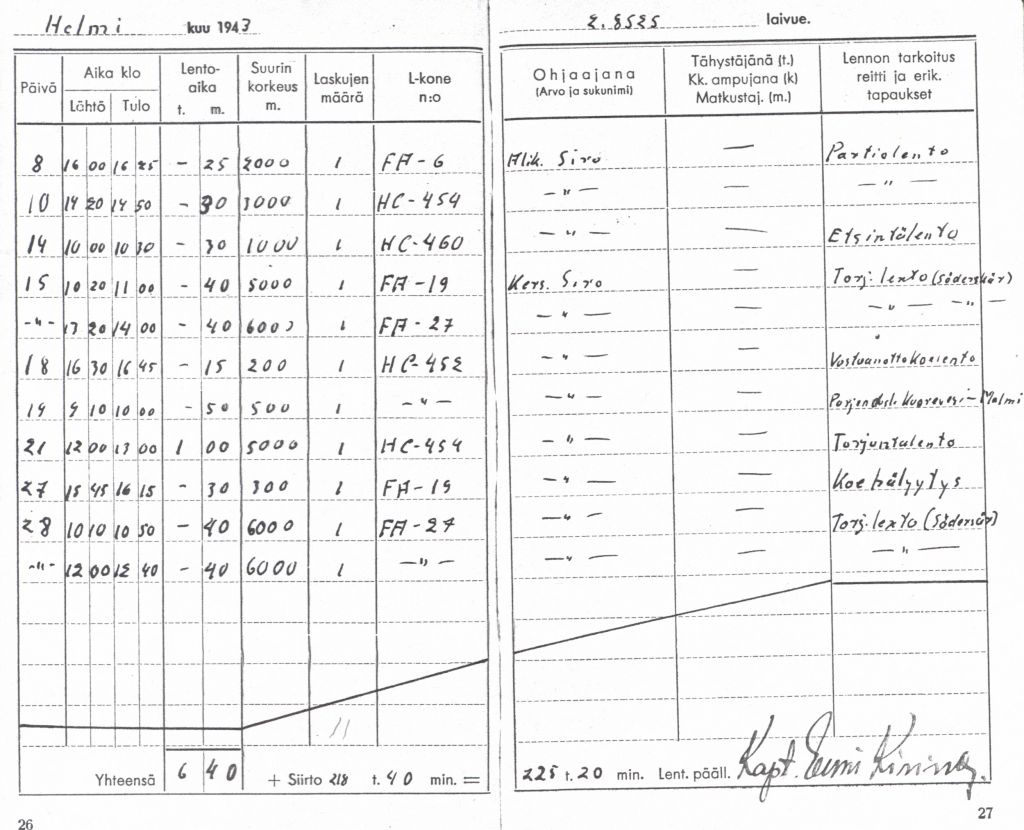 Helmi kuu 1943
2. 8525 laivue.
Päivä Aika klo Lähtö Tulo Lento-aika t. m. Suurin korkeus m. Laskujen määrä L-kone n:o Ohjaajana (Arvo ja sukunimi) Tähystäjänä (t.) Kk. ampujana (k) Matkustaj. (m.) Lennon tarkoitus reitti ja erik. tapaukset
8 16 00 16 25 - 25 2000 1 FA-6 Alik. Siro — Partiolento
10 14 20 14 50 - 30 3000 1 HC-454 -"- — -"-
14 10 00 10 30 - 30 1000 1 HC-460 -"- — Etsintälento
15 10 20 11 00 - 40 5000 1 FA-19 Kers. Siro — Torj. lento (Söderskär)
-"- 13 20 14 00 - 40 6000 1 FA-27 -"- — -"- -"-
18 16 30 16 45 - 15 200 1 HC-452 -"- — Vastaanottokoelento
19 9 10 10 00 - 50 500 1 -"- -"- — Kuorevesi-Malmi
21 12 00 13 00 1 00 5000 1 HC-454 -"- — Torjuntalento
27 15 45 16 15 - 30 300 1 FA-19 -"- — Koehälyytys
28 10 10 10 50 - 40 6000 1 FA-27 -"- — Torj. lento (Söderskär)
-"- 12 00 12 40 - 40 6000 1 -"- -"- — -"-
11
Yhteensä 6 40 + Siirto 218 t. 40 min. = 225 t. 20 min. Lent. pääll. Kapt.
26
27